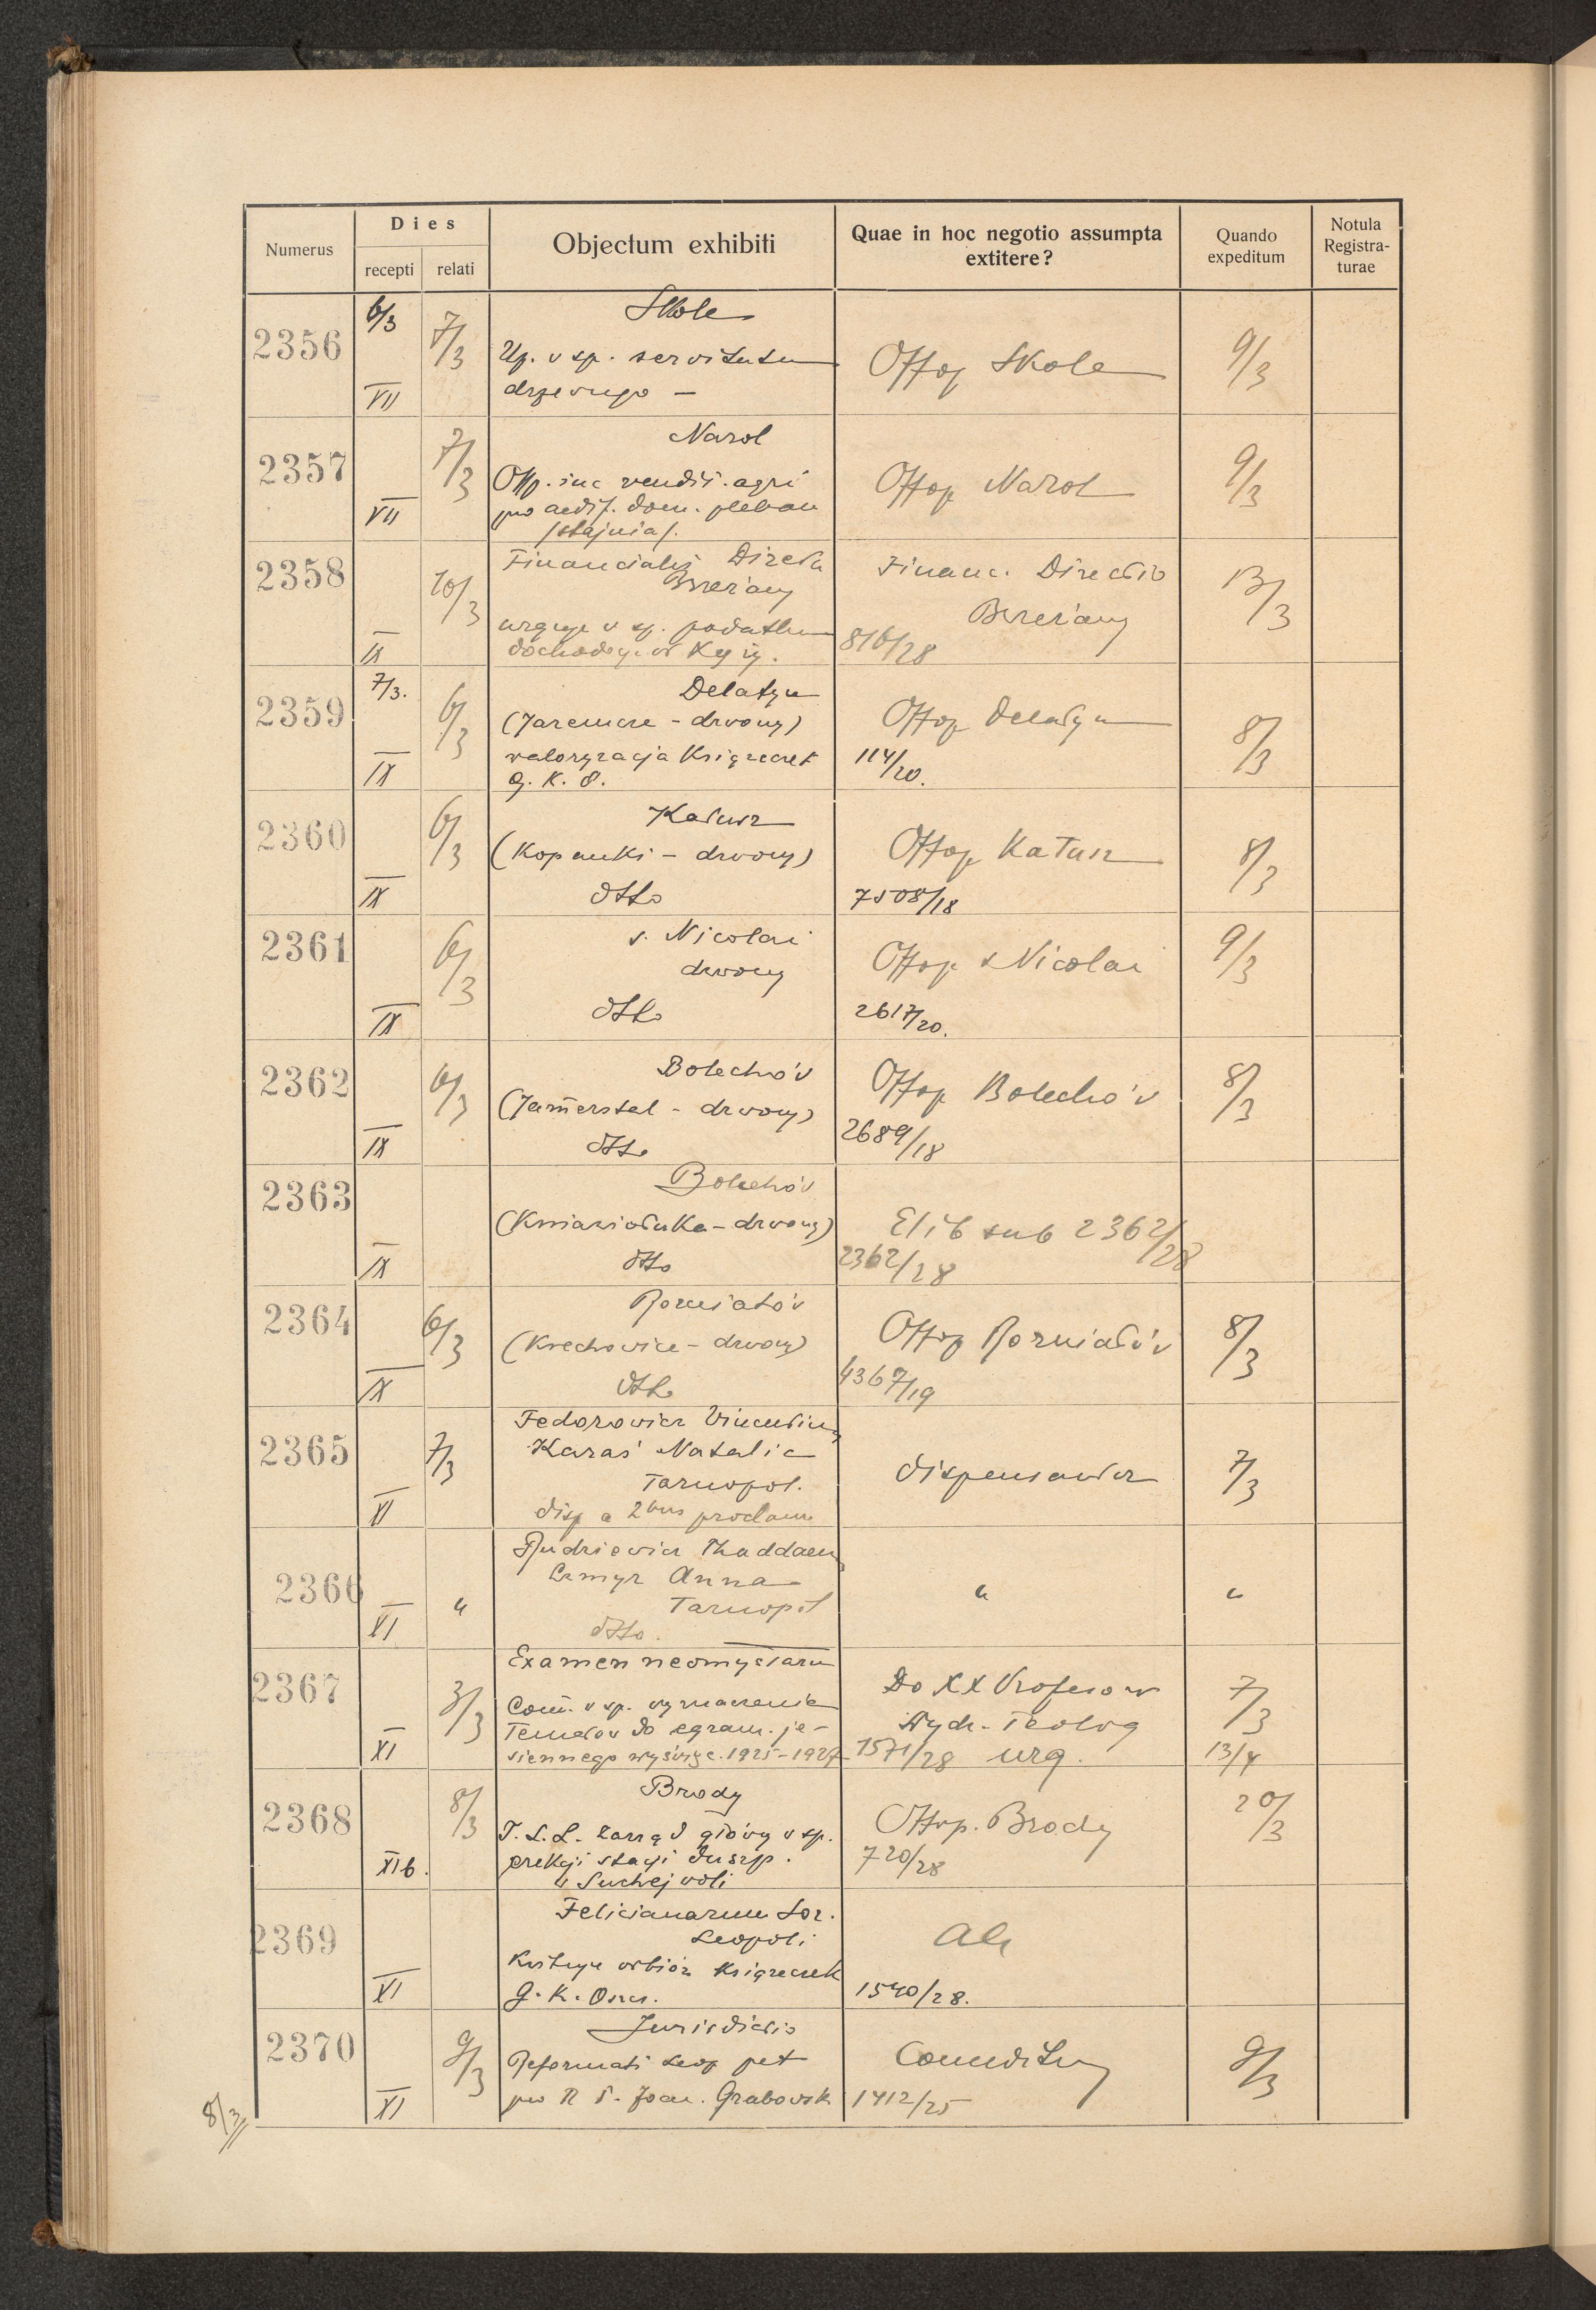 Numerus
Dies
recepti
relati
Objectum exhibiti
Quae in hoc negotio assumpta
extitere?
Quando
expeditum
Notula
Registra-
turae
2356
6/3
VII
7/3
Skole
Up. v sp. servitutu
drzewnego —
Offop Skole
9/3
2357
VII
7/3
Narol
Offop. vendit. agri
pro aedif. dom. pleban
/stajnia/.
Offop Narol
9/3
2358
IX
10/3
Financialis Direkt
Brzeżany
urguje v sp. podatku
dochodow.
Financ. Directio
Brzeżany
816/28
13/3
2359
7/3.
IX
6/3
Delatyn
(Jaremcze - dzwony)
waloryzacja Książeczek
G. K. O.
Offop Delatyn
114/20.
8/3
2360
IX
6/3
Kałusz
(Kopanki - dzwony)
dtto
Offop Kałusz
7508/18
8/3
2361
IX
6/3
s. Nicolai
dzwony
dtto
Offop s Nicolai
2617/20.
9/3
2362
IX
6/3
Bolechów
(Jamerstal - dzwony)
dtto
Offop Bolechów
2689/18
8/3
2363
IX
Bolechów
(Kniaziołuka - dzwony)
dtto
Elib sub 2362/28
2362/28
2364
IX
6/3
Rozniatów
(Krechowice - dzwony)
dtto
Offop Rozniatów
4367/19
8/3
2365
XI
7/3
Fedorowicz Vincentius
Karaś Natalia
Tarnopol.
disp a 2bus proclam
dispensantur
7/3
2366
XI
"
Rudziewicz Thaddaeus
Anna
Tarnopol
dtto.
"
"
2367
XI
3/3
Examen neomystarum
Com. v sp. wyznaczenia
Tematów do egzam. je-
siennego wyśw. z r. 1925-1927
Do XX Profesorów
Wydz. Teolog
1571/28 urg.
7/3
13/4
2368
XIb.
8/3
Brody
T. S. L. Zarząd główny v sp.
erekcji stacji duszp.
w Suchej woli
Offop. Brody
720/28
20/3
2369
XI
Felicianarum Sor.
Leopoli
Kwituje odbiór Książeczek
G. K. Oszcz.
Aa
1540/28.
2370
XI
9/3
Jurisdictio
Reformati Leop pet
pro R P. Joan. Grabowsk
1412/25
9/3
8/3